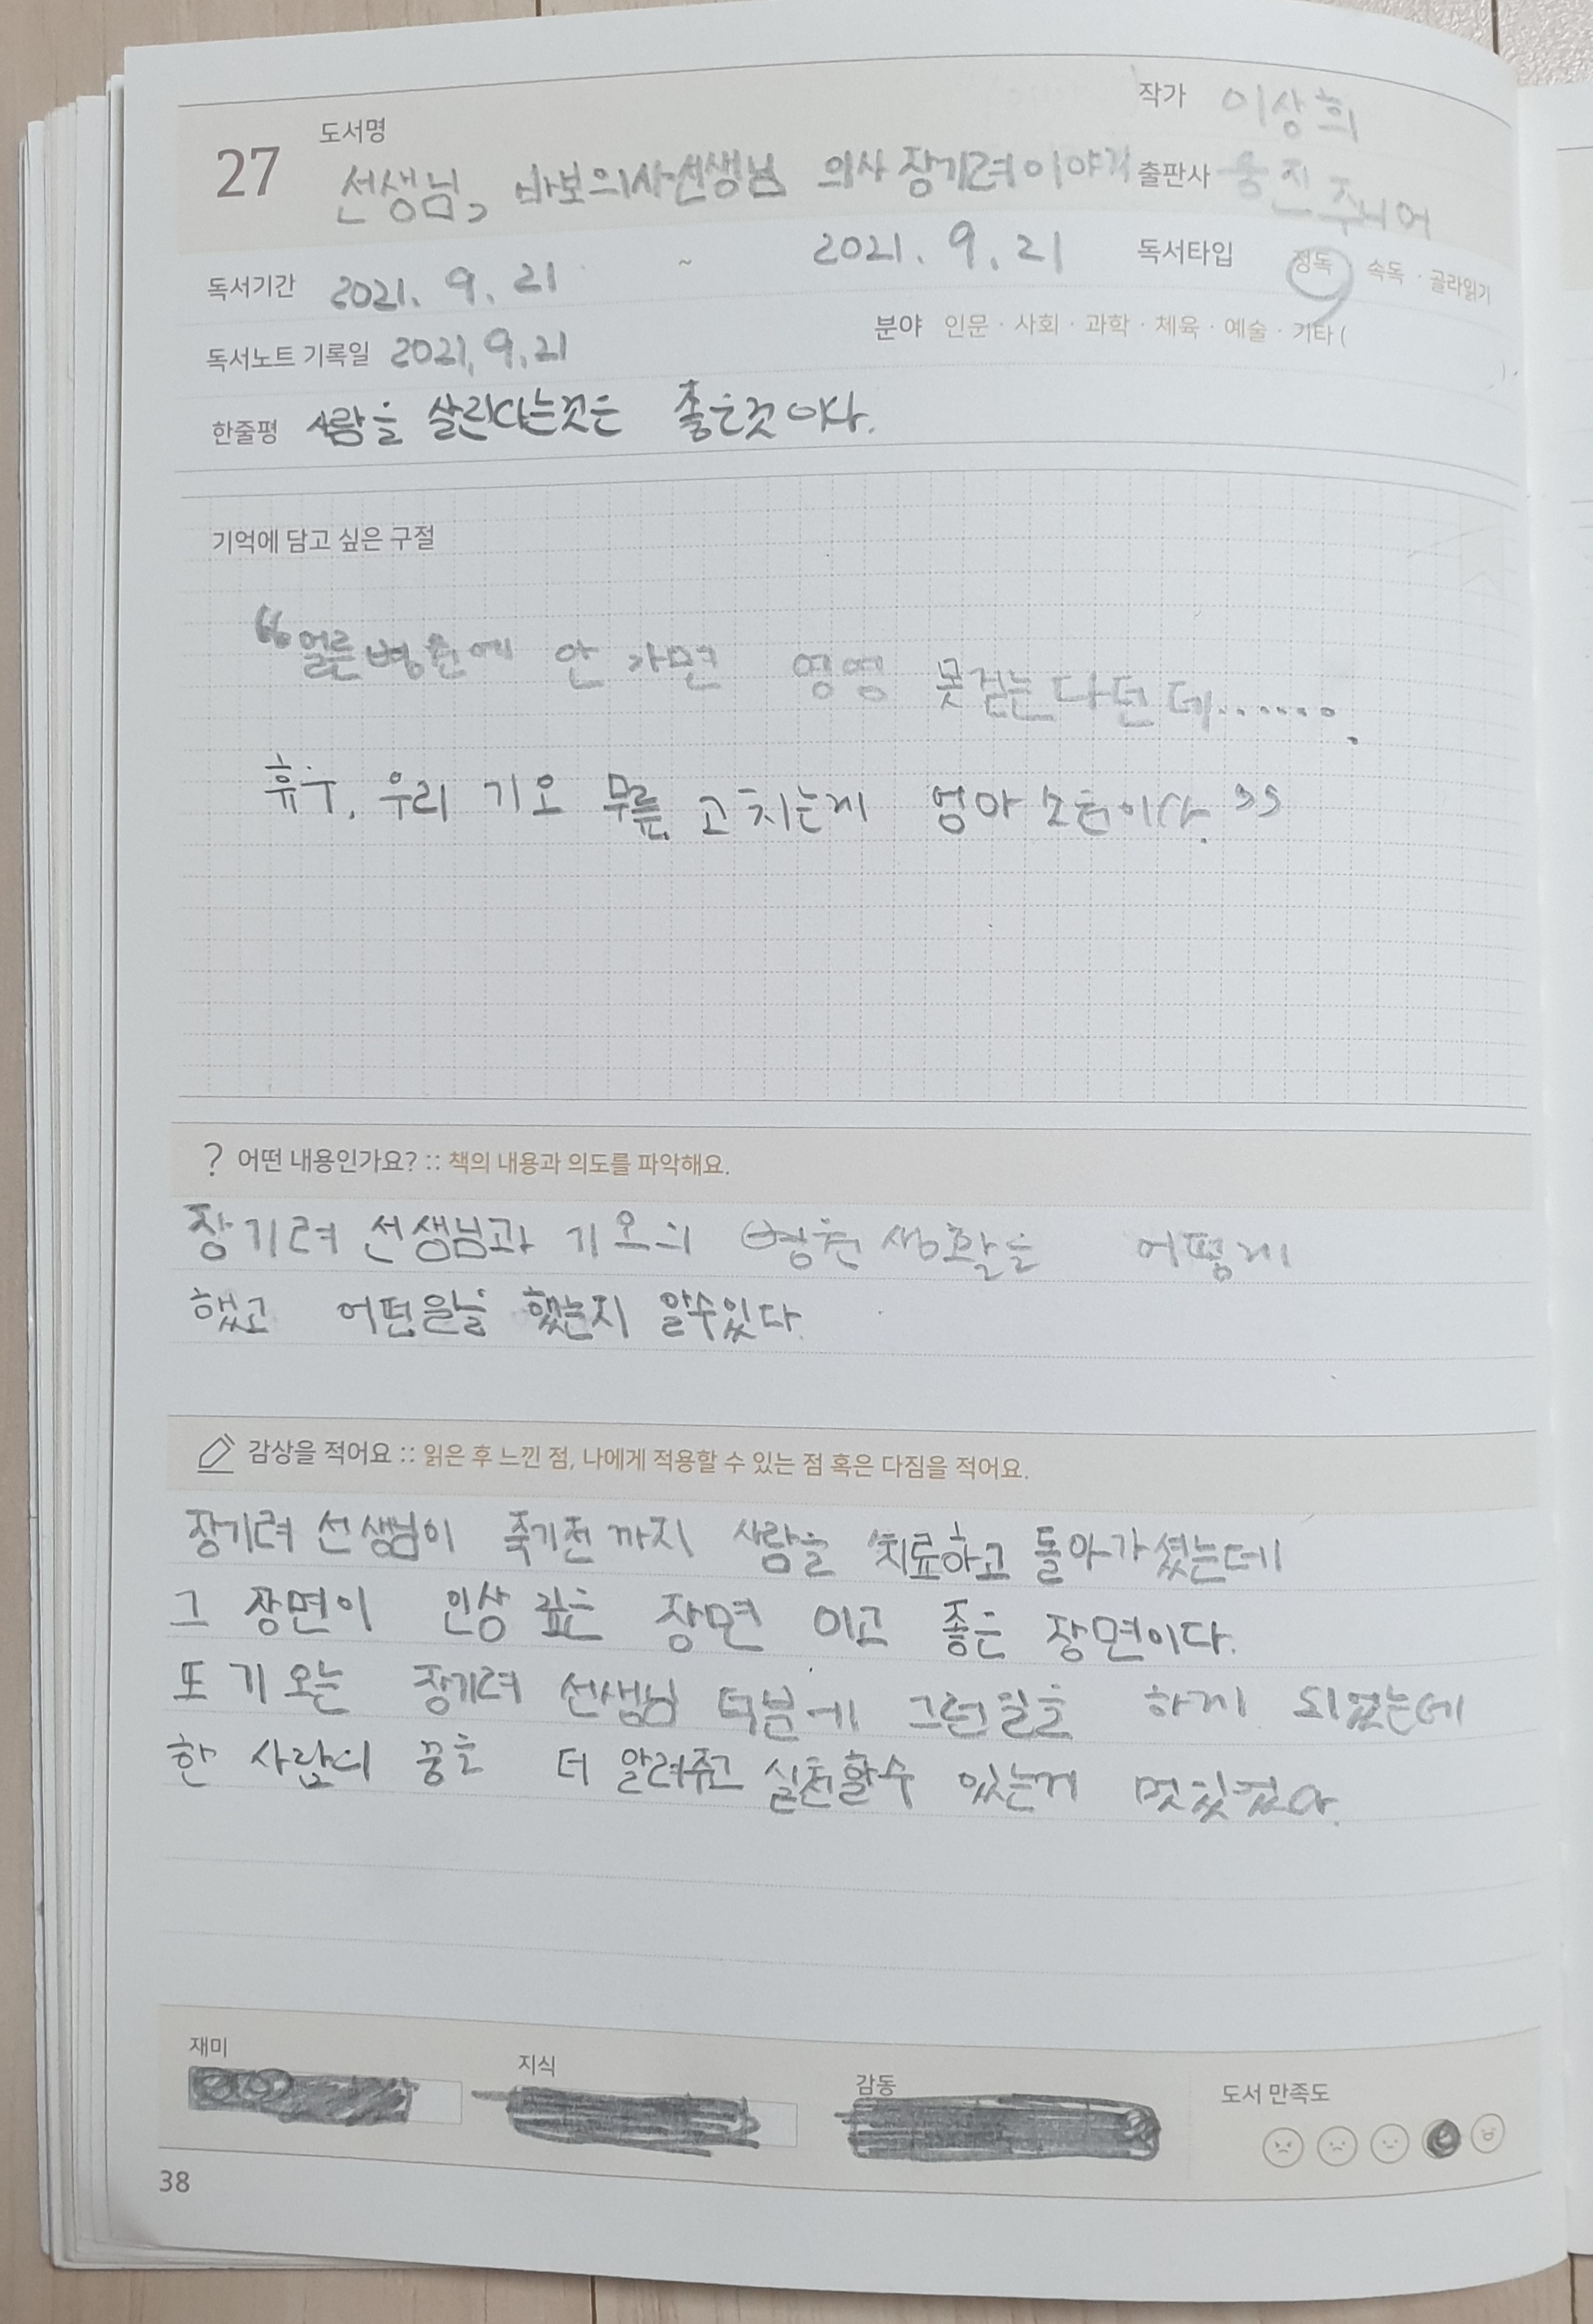 27
도서명
선생님, 바보의사선생님 의사 장기려이야기
작가 이상희
출판사 웅진주니어
독서기간 2021. 9. 21 ~ 2021. 9. 21
독서타입 정독 · 속독 · 골라읽기
독서노트 기록일 2021, 9, 21
분야 인문 · 사회 · 과학 · 체육 · 예술 · 기타 ( )
한줄평 사람을 살린다는것은 좋은것이다.
기억에 담고 싶은 구절
“얼른병원에 안 가면 영영 못걷는다던데.......
휴우, 우리 기오 무릎 고치는게 엄마 소원이다.”
? 어떤 내용인가요? :: 책의 내용과 의도를 파악해요.
장기려 선생님과 기오의 병원생활을 어떻게
했고 어떤일을 했는지 알수있다.
감상을 적어요 :: 읽은 후 느낀 점, 나에게 적용할 수 있는 점 혹은 다짐을 적어요.
장기려 선생님이 죽기전 까지 사람을 치료하고 돌아가셨는데
그 장면이 인상 깊은 장면 이고 좋은 장면이다.
또 기오는 장기려 선생님 덕분에 그런일을 하게 되었는데
한 사람의 꿈을 더 알려주고 실천할수 있는게
재미
지식
감동
도서 만족도
38